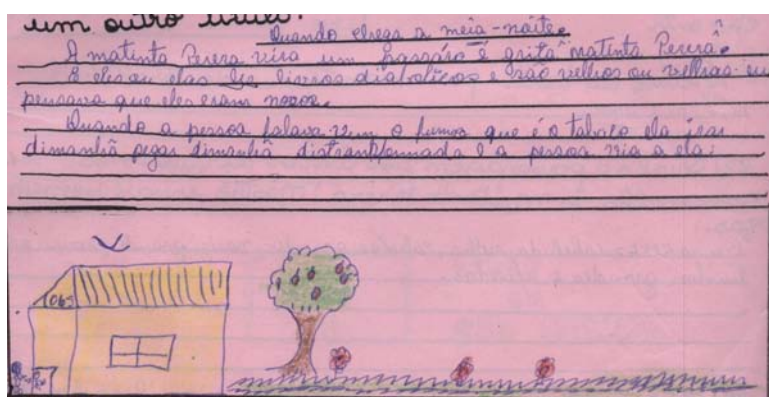 um outro
Quando chega a meia-noite.
A matinta Perera vira um passaro é grita "matinta Perera".
E eles ou elas les livros diabolicos e são velhos ou velhas eu
pensava que eles eram novos.
Quando a pessoa falava vem o fumo que é o tabaco ela irar
dimanhã pegar dimanhã distranformada e a pessoa via a ela.
1065